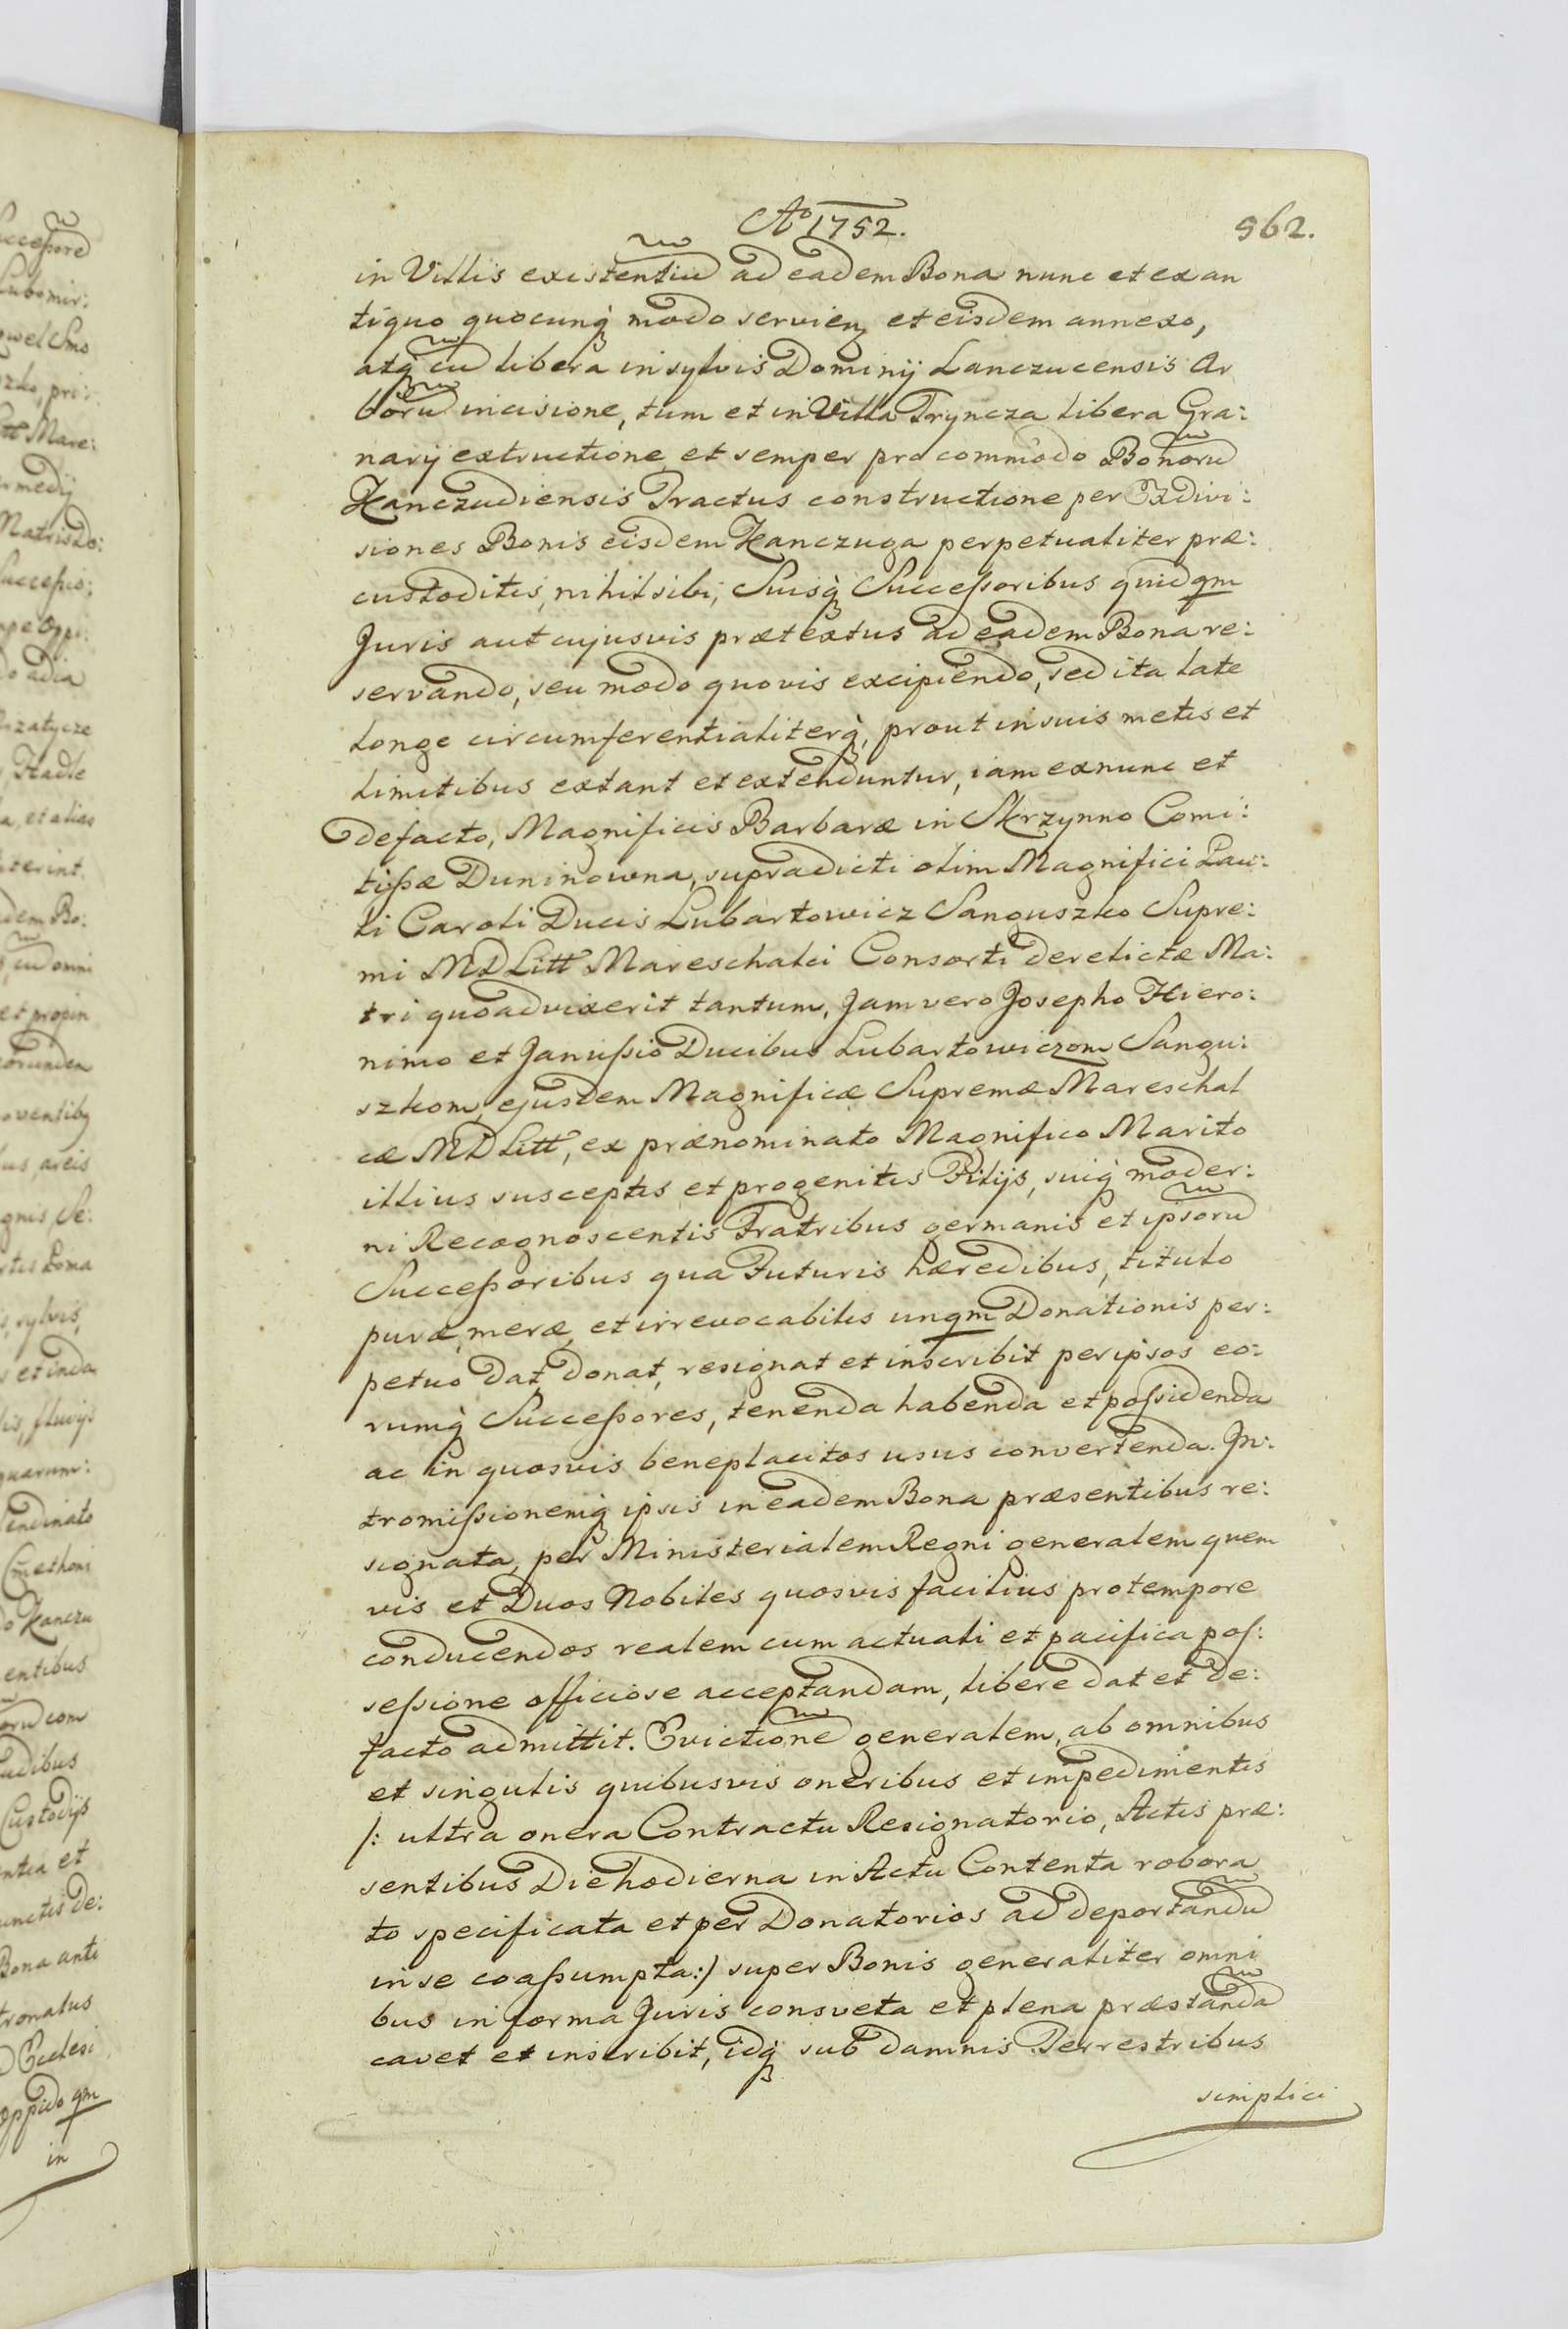 Aº 1752.
562.
in Villis existentiũ ad eadem Bona nunc et ex an
tiquo quocunq́ modo servienꝫ et eisdem annexo,
atq́ cũ libera in sylvis Dominij Lanczucensis Ar
borũ incisione, tum et in Villa Tryncza libera Gra:
narij extructione et semper pro commodo Bonorũ
Kanczudiensis Tractus constructione per Exdivi:
siones Bonis eisdem Kanczuga perpetualiter præ:
custoditis, nihil sibi, Suisq́ Successoribus quidqm
Juris aut cujusvis prætextus ad eadem Bona re:
servando, seu modo quovis excipiendo, sed ita late
longe circumferentialiterq́, prout in suis metis et
limitibus extant et extenduntur, iam exnunc et
defacto, Magnificis Barbaræ in Skrzynno Comi:
tissæ Duninowna, supradicti olim Magnifici Pau:
li Caroli Ducis Lubartowicz Sanguszko Supre:
mi MDLitt Mareschalci Consorti derelictæ Ma:
tri quoadvixerit tantum, Jam vero Josepho Hiero:
nimo et Janussio Ducibus Lubartowiczom Sangu:
szkom, ejusdem Magnificæ Supremæ Mareschal
cæ MDLitt, ex prænominato Magnifico Marito
illius susceptis et progenitis Filijs, suiq́ moder:
ni Recognoscentis Fratribus germanis et ipsorũ
Successoribus qua Futuris hæredibus, titulo
puræ, meræ, et irrevocabilis unqm Donationis per:
petuo dat donat, resignat et inscribit per ipsos eo:
rumq́ Successores, tenenda habenda et possidenda
ac in quosvis beneplacitos usus convertenda. In:
tromissionemq́ ipsis in eadem Bona præsentibus re:
signata, per Ministerialem Regni generalem quem
vis et Duos Nobiles quosvis facilius pro tempore
conducendos realem cum actuali et pacifica pos:
sessione officiose acceptandam, libere dat et de:
facto admittit. Evictionẽ generalem, ab omnibus
et singulis quibusvis oneribus et impedimentis
/: ultra onera Contractu Resignatorio, Actis præ:
sentibus Die hodierna in Actu Contenta robora
to specificata et per Donatorios ad deportandũ
in se coassumpta :/ super Bonis generaliter omni
bus in forma Juris consveta et plena præstandã
cavet et inscribit, idq́ sub damnis Terrestribus
simplici